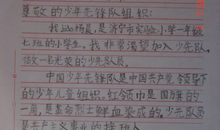 尊敬的少年先锋队组织：
我叫杨晨，是济宁市实验小学一年级
七班的小学生。我非常渴望加入少先队，
做一名光荣的少先队员。
中国少年先锋队是中国共产党领导下
的少年儿童组织。红领巾是国旗的
一角，是革命烈士鲜血染成的，少先队员
是共产主义事业的接班人